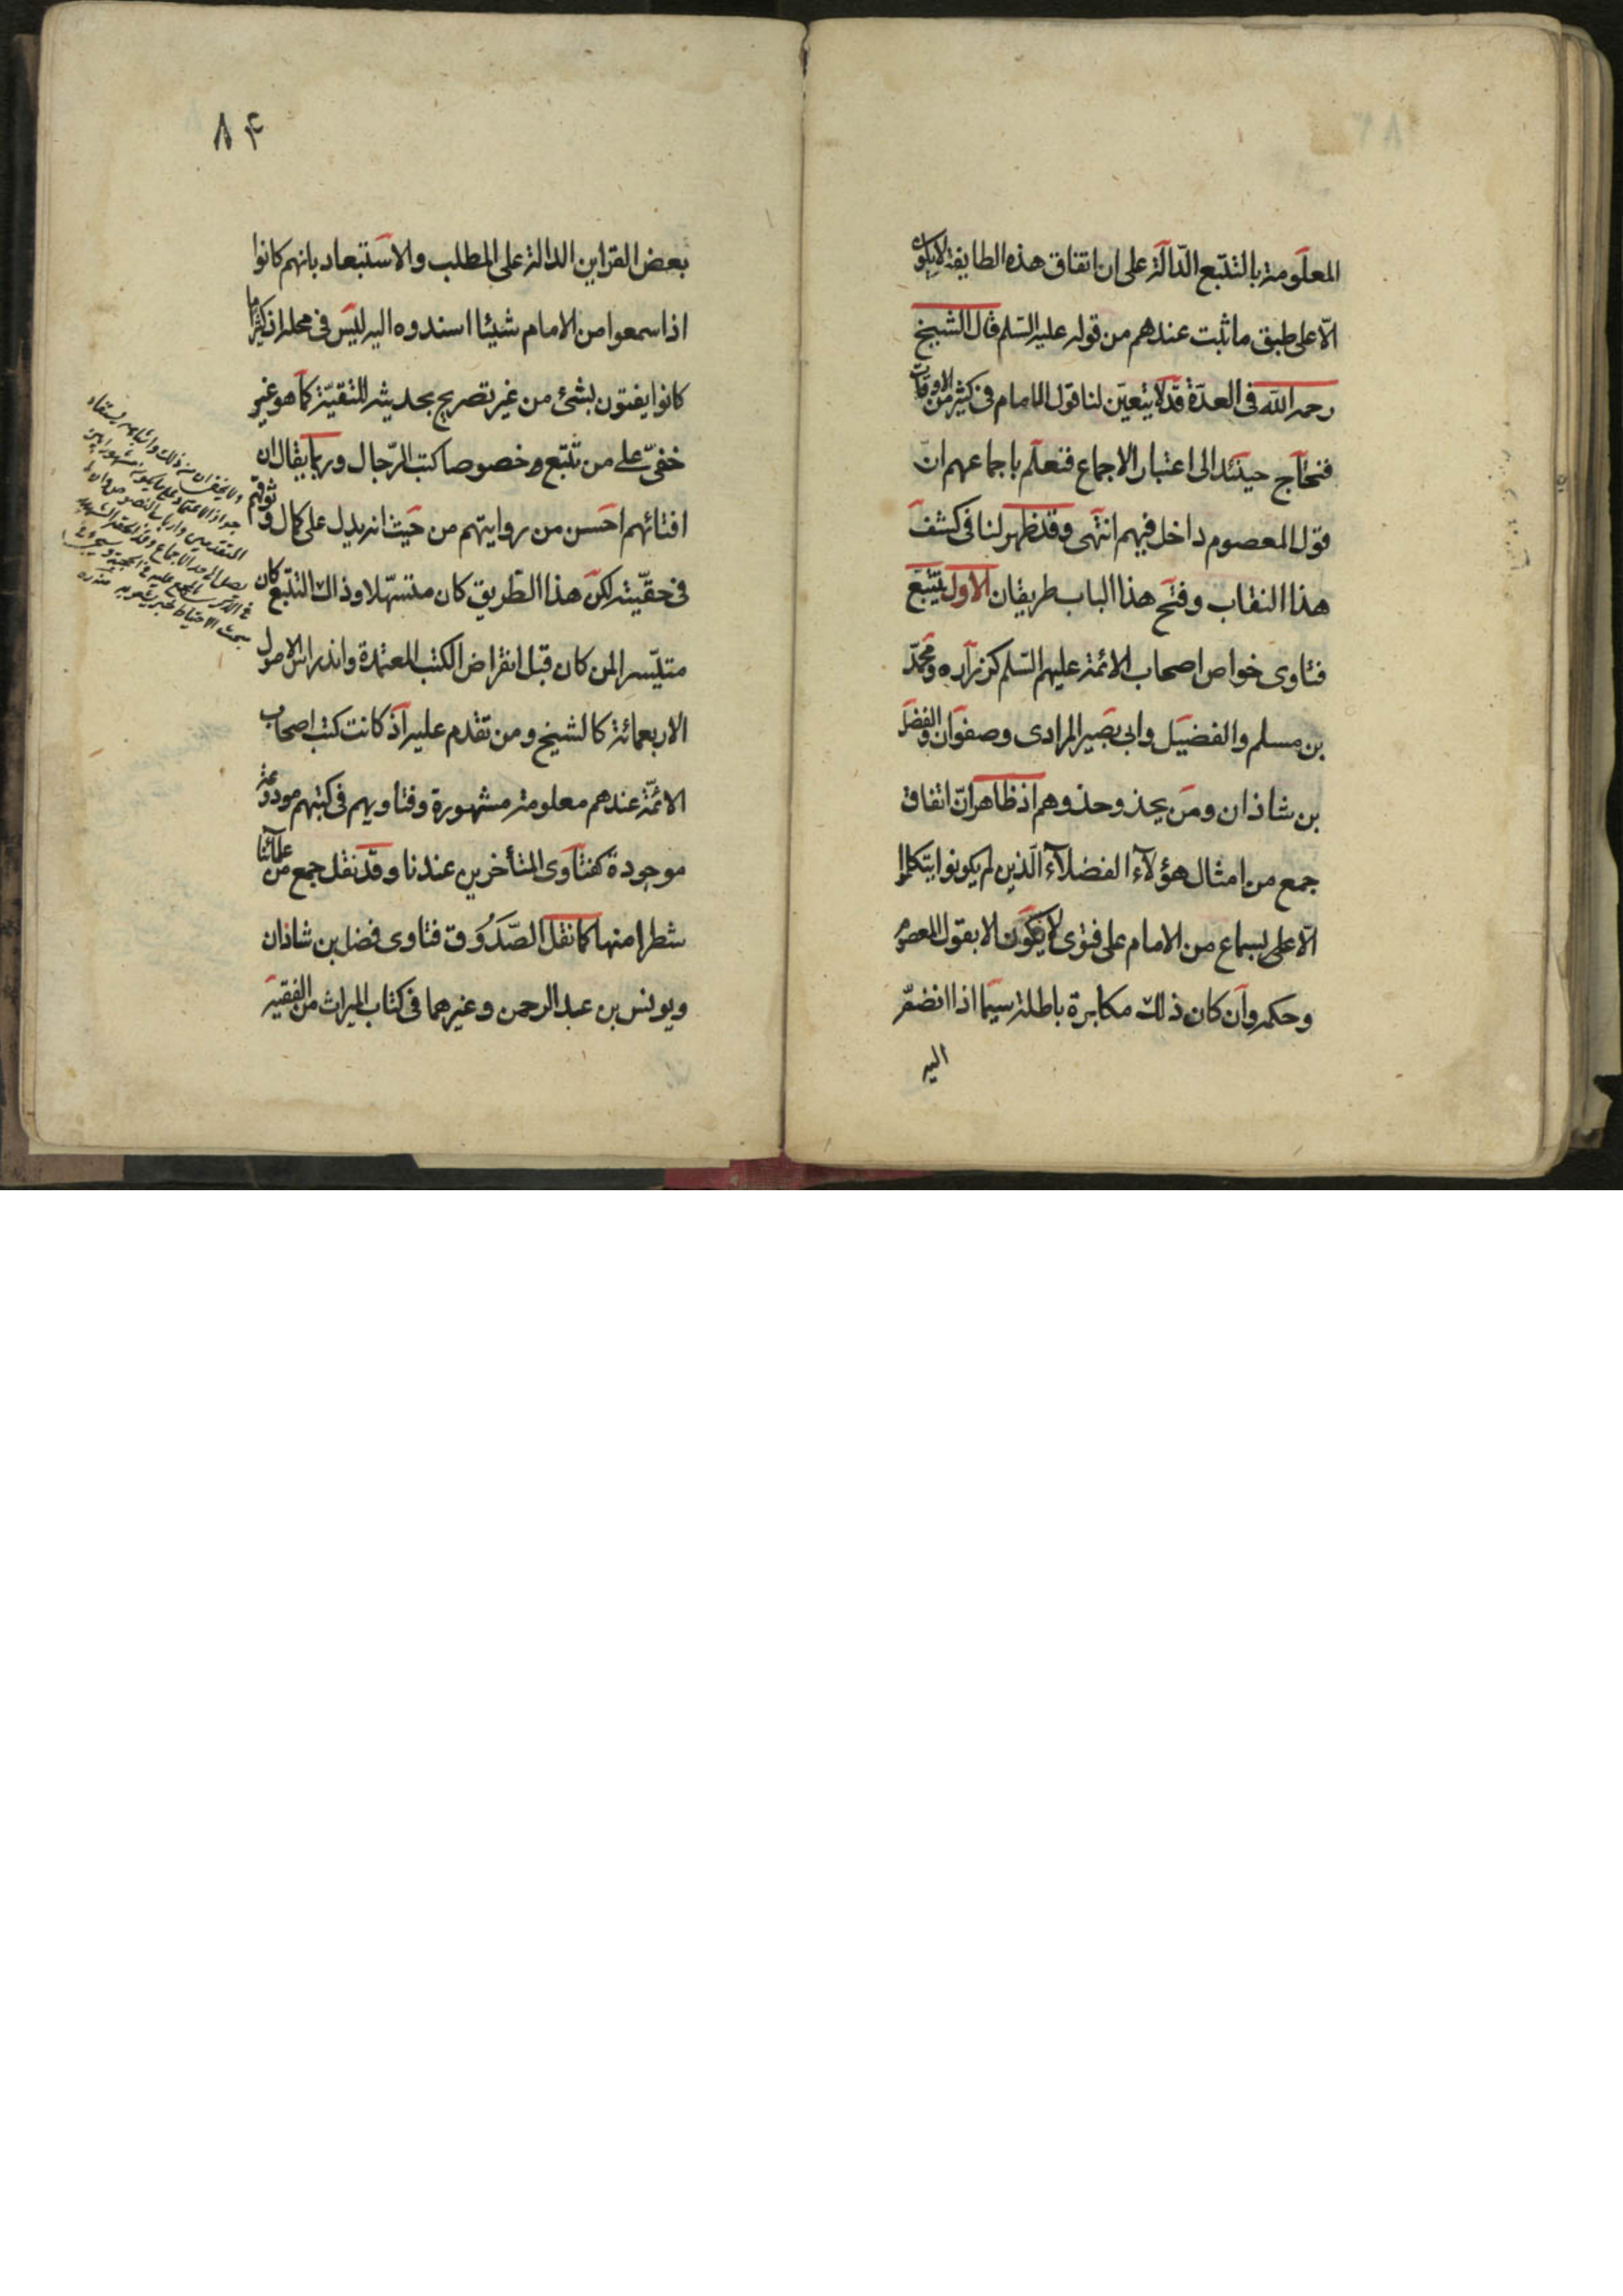 المعلومة بالتتبع الدّالة على ان اتفاق هذه الطايفة لا يكون
الّا على طبق ما ثبت عندهم من قوله عليه السّلم قال الشيخ
رحمه الله فى العدّة قد لا يتعيّن لنا قول الامام فى كثير من الاوقات
فنحتاج حينئد الى اعتبار الاجماع فنعلم باجماعهم انّ
قول المعصوم داخل فيهم انتهى وقد ظهر لنا فى كشف
هذا النقاب وفتح هذا الباب طريقان الاول تتبع
فتاوى خواص اصحاب الائمة عليهم السّلم كزرآره ومحمّد
بن مسلم والفضيل وابى بصير المرادى وصفوان والفضل
بن شاذان ومن يحذو حذوهم اذ ظاهر انّ اتفاق
جمع من امثال هؤلآء الفضلآء الّذين لم يكونوا يتكلموا
الّا على بسماع من الامام على فتوى لا يكون الا بقول المعصوم
وحكمه وان كان ذلك مكابرة باطلة سيّما اذا انضمّ
اليه
٨۴
بعض القراين الدالة على المطلب والاستبعاد بانهم كانوا
اذا سمعوا من الامام شيئا اسندوه اليه ليس فى محله اذ كثيرا ما
كانوا يفتون بشئ من غير تصريح بحديثه للتقيّة كما هو غير
خفىّ على من تتبع وخصوصا كتب الرّجال وربما يقال ان
افتائهم احسن من روايتهم من حيث انه يدل على كمال وثوقهم
فى حقّيته لكن هذا الطّريق كان متسهّلا وذاك التتبّع كان
متيّسر المن كان قبل انقراض الكتب المعتمدة واندراس الاصول
الاربعمائة كالشيخ ومن تقدم عليه اذ كانت كتب اصحاب
الائمّة عندهم معلومة مشهورة وفتاويهم فى كتبهم مودوعة
موجودة كفتاوى المتأخرين عندنا وقد نقل جمع من علمآئنا
شطرا منها كما نقل الصّدُوق فتاوى فضل بن شاذان
ويونس بن عبد الرحمن وغيرهما فى كتاب الميراث من الفقيه
ولا يخفى ان من ذلك وامثاله يستفاد
جواز الاعتماد على ما يكون مشهورا بين
المتقدمين وارباب النصوص وان لم
يصل الى حد الاجماع